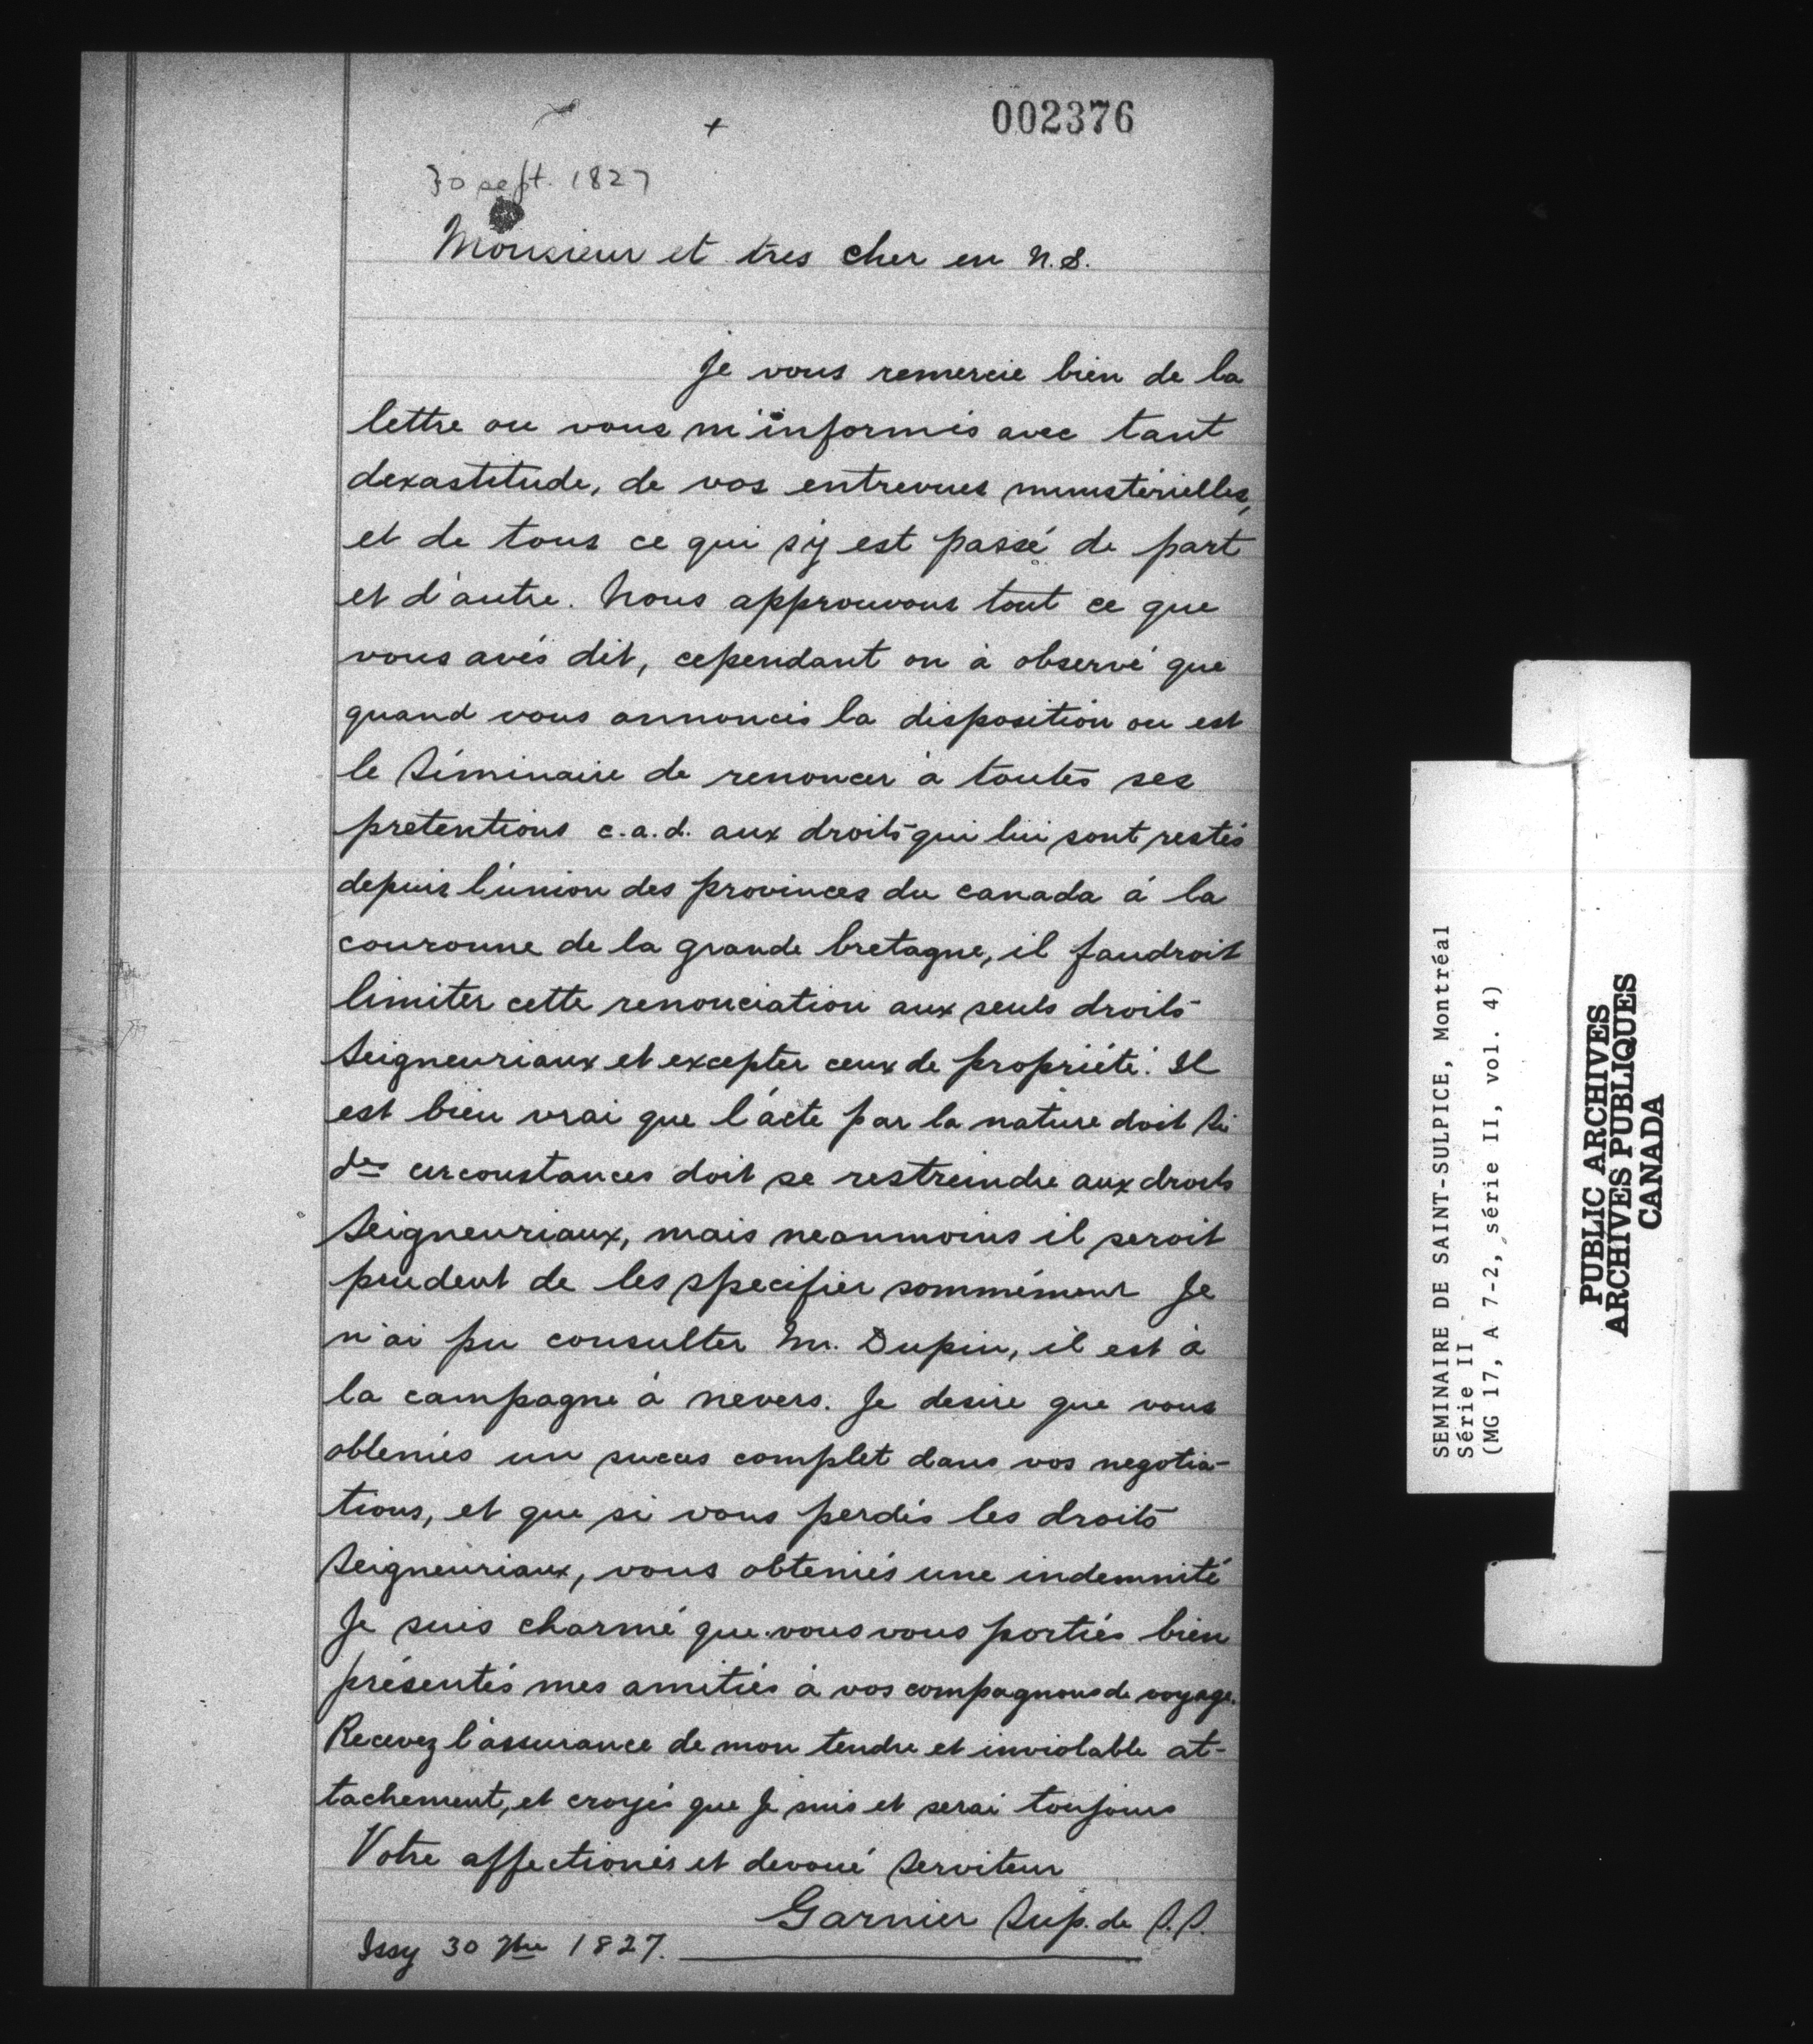 002376
+
30 sept. 1827
Monsieur et tres cher en N.S.
Je vous remercie bien de la
lettre ou vous m'informés avec tant
dexastitude, de vos entrevues ministérielles,
et de tous ce qui s'y est passé de part
et d'autre. Nous approuvons tout ce que
vous avés dit, cependant on à observé que
quand vous annoncés la disposition ou est
le Séminaire de renoncer à toutes ses
pretentions c.a.d. aux droits qui lui sont restés
depuis l'union des provinces du canada à la
couronne de la grande bretagne, il faudroit
limiter cette renonciation aux seuls droits
Seigneuriaux et excepter ceux de propriété. Il
est bien vrai que l'acte par la nature doit Si
des circonstances doit se restreindre aux droits
Seigneuriaux, mais neanmoins il seroit
prudent de les specifier sommément Je
n'ai pu consulter Mr. Dupin, il est à
la campagne à nevers. Je desire que vous
obteniés un succes complet dans vos negotia-
tions, et que si vous perdés les droits
Seigneuriaux, vous obteniés une indemnité
Je suis charmé que vous vous portiés bien
présentés mes amitiés à vos compagnons de voyage.
Recevez l'assurance de mon tendre et inviolable at-
tachement, et croyés que Je suis et serai toujours
Votre affectionés et devoué Serviteur
Garnier Sup. de S.S.
Issy 30 7bre 1827.
SEMINAIRE DE SAINT-SULPICE, Montréal
Série II
(MG 17, A 7-2, série II, vol. 4)
PUBLIC ARCHIVES
ARCHIVES PUBLIQUES
CANADA